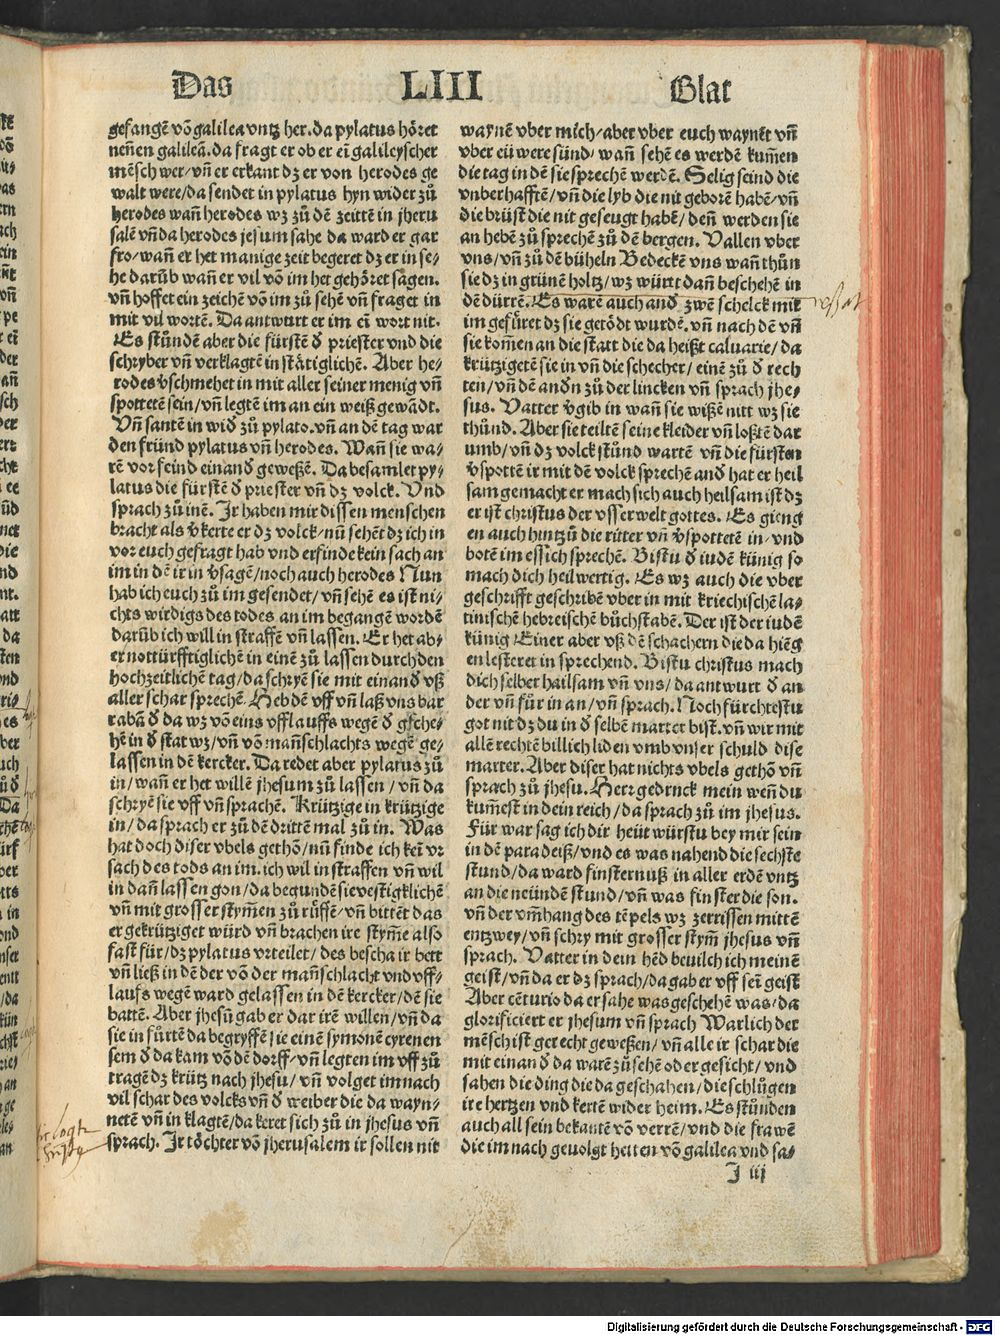 Das LIII Blat
gefangē vō galilea vntz her. da pylatus höret
neñen galileā. da fragt er ob er eī galileyscher
mēsch wer / vñ er erkant dz er von herodes ge
walt were / da sendet in pylatus hyn wider zů
herodes wañ herodes wz zů dē zeittē in jheru
salē vñ da herodes jesum sahe da ward er gar
fro / wañ er het manige zeit begeret dz er in se-
he darūb wañ er vil vō im het gehöret sagen.
vñ hoffet ein zeichē vō im zů sehē vñ fraget in
mit vil wortē. Da antwurt er im eī wort nit.
Es stůndē aber die fürstē đ priester vnd die
schryber vñ verklagtē in stätiglichē. Aber he-
rodes v̄schmehet in mit aller seiner menig vñ
spottetē sein / vñ legtē im an ein weiß gewādt.
Vñ santē in wiđ zů pylato. vñ an dē tag war
den fründ pylatus vñ herodes. Wañ sie wa-
rē vor feind einanđ geweßē. Da besamlet py-
latus die fürstē đ priester vñ dz volck. Vnd
sprach zů inē. Ir haben mir dissen menschen
bracht als v̄kerte er dz volck / nů sehēt dz ich in
vor euch gefragt hab vnd erfinde kein sach an
im in dē ir in v̄sagē / noch auch herodes Nun
hab ich euch zů im gesendet / vñ sehē es ist ni-
chts wirdigs des todes an im begangē wordē
darūb ich will in straffē vñ lassen. Er het ab-
er notturfftiglichē in einē zů lassen durch den
hochzeitlichē tag / da schryē sie mit einanđ vß
aller schar sprechē. Heb dē vff vñ laß vns bar
rabā đ da wz vō eins vfflauffs wegē đ gesche-
hē in đ stat wz / vñ vō mañschlachts wegē ge-
lassen in dē kercker. Da redet aber pylatus zů
in / wañ er het willē jhesum zů lassen / vñ da
schryē sie vff vñ sprachē. Krützige in krützige
in / da sprach er zů dē drittē mal zů in. Was
hat doch diser vbels gethō / nů finde ich keī vr
sach des tods an im. ich wil in straffen vñ wil
in dañ lassen gon / da begundē sie vestigklichē
vñ mit grosser stym̄en zů růffē / vñ bittēt das
er gekrütziget würd vñ brachen ire stym̄e also
fast für / dz pylatus vrteilet / des bescha ir bett
vñ ließ in dē der vō der mañschlacht vnd vff-
laufs wegē ward gelassen in dē kercker / dē sie
battē. Aber jhesū gab er dar irē willen / vñ da
sie in fůrtē da begryffē sie einē symonē cyrenen
sem đ da kam vō dē dorff / vñ legten im vff zů
tragē dz krütz nach jhesu / vñ volget im nach
vil schar des volcks vñ đ weiber die da wayn-
netē vñ in klagtē / da keret sich zů in jhesus vñ
sprach. Ir töchter vō jherusalem ir sollen nit
waynē vber mich / aber vber euch waynēt vñ
vber eü were sünd / wañ sehē es werdē kum̄en
die tag in dē sie sprechē werdē. Selig seind die
vnberhafftē / vñ die lyb die nit geborē habē / vñ
die brüst die nit geseugt habē / deñ werden sie
an hebē zů sprechē zů dē bergen. Vallen vber
vns / vñ zů dē büheln Bedeckē vns wañ thůn
sie dz in grünē holtz / wz würt dañ beschehē in
dē dürrē. Es warē auch anđ zwē schelck mit
im gefüret dz sie getödt wurdē. vñ nach dē vñ
sie kom̄en an die statt die da heißt caluarie / da
krützigetē sie in vñ die schecher / einē zů đ rech
ten / vñ dē andn zů der lincken vñ sprach jhe-
sus. Vatter v̄gib in wañ sie wißē nitt wz sie
thůnd. Aber sie teiltē seine kleider vñ loßtē dar
umb / vñ dz volck stůnd wartē vñ die fürsten
v̄spottē ir mit dē volck sprechē anđ hat er heil
sam gemacht er mach sich auch heilsam ist dz
er ist christus der vsserwelt gottes. Es gieng
en auch hintzů die ritter vñ v̄spottetē in / vnd
botē im essich sprechē. Bistu đ iudē künig so
mach dich heilwertig. Es wz auch die vber
geschrifft geschribē vber in mit kriechischē la-
tinischē hebreischē bůchstabē. Der ist der iudē
künig Einer aber vß dē schachern die da hiēg
en lesteret in sprechend. Bistu christus mach
dich selber hailsam vñ vns / da antwurt đ an
der vñ fůr in an / vñ sprach. Noch fürchtestu
got nit dz du in đ selbē marter bist. vñ wir mit
allē rechtē billich liden vmb vnser schuld dise
marter. Aber diser hat nichts vbels gethō vñ
sprach zů jhesu. Herr gedenck mein weñ du
kum̄est in dein reich / da sprach zů im jhesus.
Für war sag ich dir heüt würstu bey mir sein
in dē paradeiß / vnd es was nahend die sechste
stund / da ward finsternuß in aller erdē vntz
an die neündē stund / vñ was finster die son.
vñ der vm̄hang des tēpels wz zerrissen mittē
entzwey / vñ schry mit grosser stym̄ jhesus vñ
sprach. Vatter in dein hēd beuilch ich meinē
geist / vñ da er dz sprach / da gab er vff seī geist
Aber cēturio da er sahe was geschehē was / da
glorificiert er jhesum vñ sprach Warlich der
mēsch ist gerecht geweßen / vñ alle ir schar die
mit einanđ da warē zů sehē od er gesicht / vnd
sahen die ding die da geschahen / die schlůgen
ire hertzen vnd kertē wider heim. Es stůnden
auch all sein bekantē vō verrē / vnd die frawē
die im nach geuolgt hetten vō galilea vnd sa-
I iij
Digitalisierung gefördert durch die Deutsche Forschungsgemeinschaft - DFG